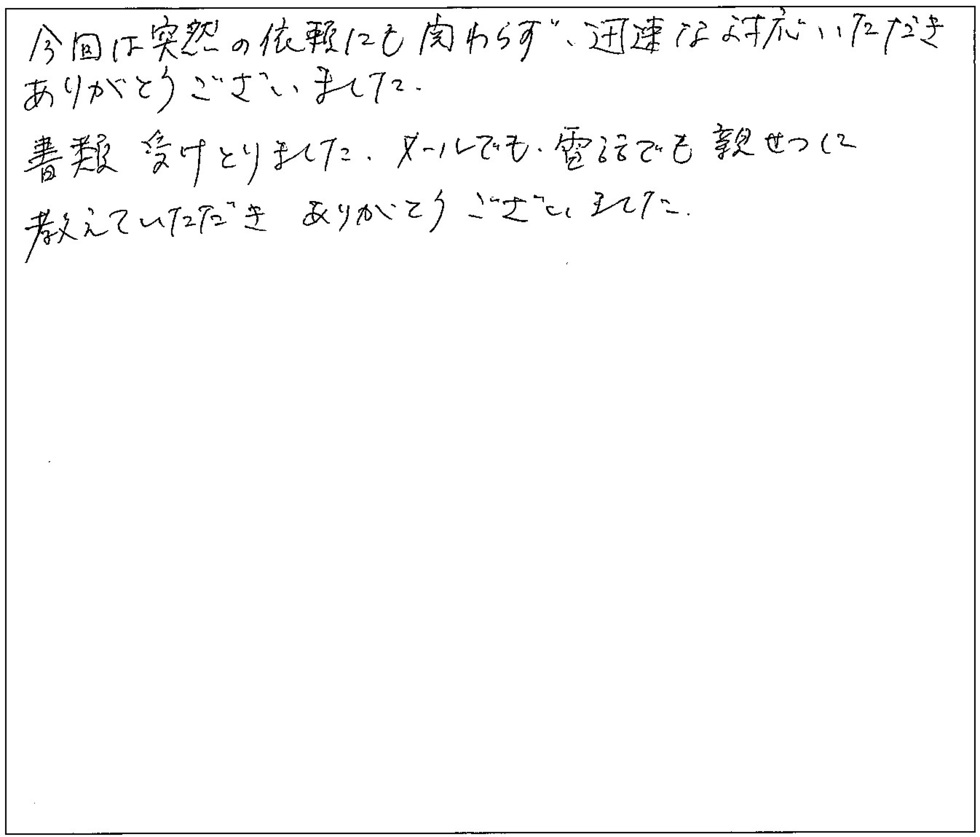 今回は突然の依頼にも関わらず、迅速な対応いただき
ありがとうございました.
書類 受けとりました. メールでも. 電話でも 親せつに
教えていただき ありがとう ございました.